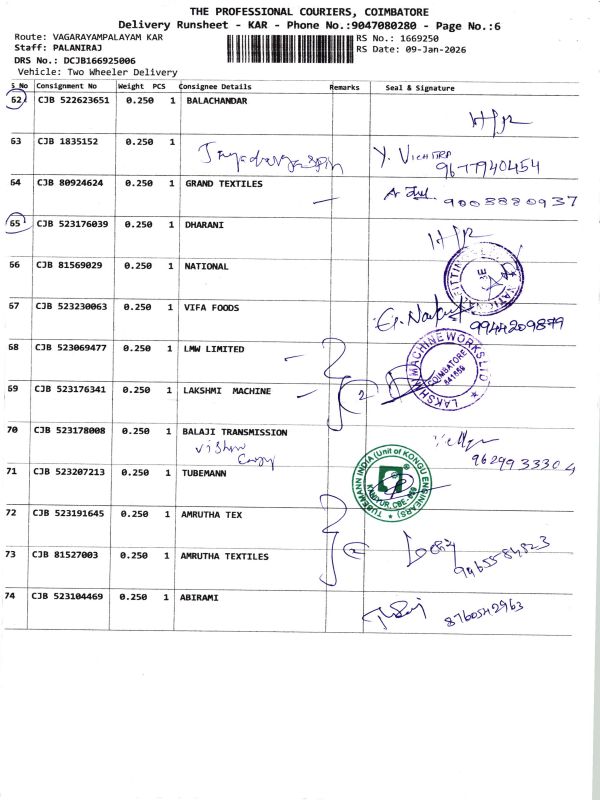 THE PROFESSIONAL COURIERS, COIMBATORE
Delivery Runsheet - KAR - Phone No.:9047080280 - Page No.:6
Route: VAGARAYAMPALAYAM KAR
RS No.: 1669250
Staff: PALANIRAJ
RS Date: 09-Jan-2026
DRS No.: DCJB166925006
Vehicle: Two Wheeler Delivery
S No Consignment No Weight PCS Consignee Details Remarks Seal & Signature
62 CJB 522623651 0.250 1 BALACHANDAR
63 CJB 1835152 0.250 1
Y. VICHITRA
9677940454
64 CJB 80924624 0.250 1 GRAND TEXTILES
9003880937
65 CJB 523176039 0.250 1 DHARANI
66 CJB 81569029 0.250 1 NATIONAL
67 CJB 523230063 0.250 1 VIFA FOODS
9944209879
68 CJB 523069477 0.250 1 LMW LIMITED
LAKSHMI MACHINE WORKS LTD
COIMBATORE
641659
69 CJB 523176341 0.250 1 LAKSHMI MACHINE
2
70 CJB 523178008 0.250 1 BALAJI TRANSMISSION
9629933304
71 CJB 523207213 0.250 1 TUBEMANN
TUBEMANN INDIA (Unit of KONGU ENGINEARS)
72 CJB 523191645 0.250 1 AMRUTHA TEX
73 CJB 81527003 0.250 1 AMRUTHA TEXTILES
74 CJB 523104469 0.250 1 ABIRAMI
8760542963